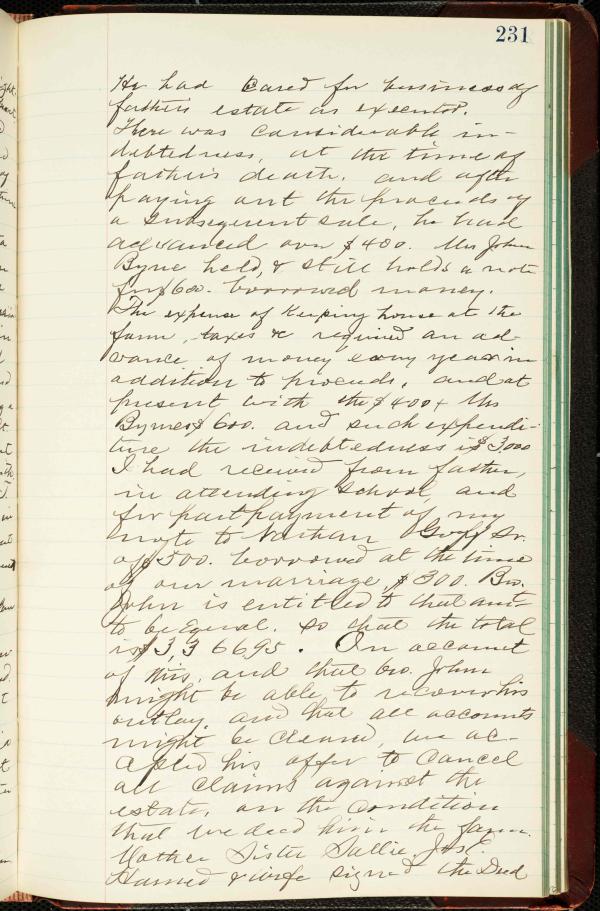 231
He had Cared for business of
father's estate as executor.
There was considerable in-
debtedness, at the time of
father's death. and after
paying out the proceeds of
a subsequent sale, he had
advanced over $400. Mrs John
Byrne held, & still holds a note
for $600. borrowed money.
The expense of Keeping house at the
farm, taxes &c required an ad-
vance of money every year in
addition to proceeds, and at
present with the $400 & Mrs
Byrnes $600. and such expendi-
ture the indebtedness is $3,000
I had received from father,
in attending School, and
for part payment of my
note to Nathan Goff Sr.
of $500. borrowed at the time
of our marriage, $300. Bro.
John is entitled to that amt
to be Equal. so that the total
is $33 6695. On account
of this, and that bro. John
might be able to recover his
outlay. and that all accounts
might be cleared, we ac-
cepted his offer to Cancel
all claims against the
estate, on the condition
that we deed him the farm.
Mother Sister Sallie, J.E.
Harned & wife signed the Deed